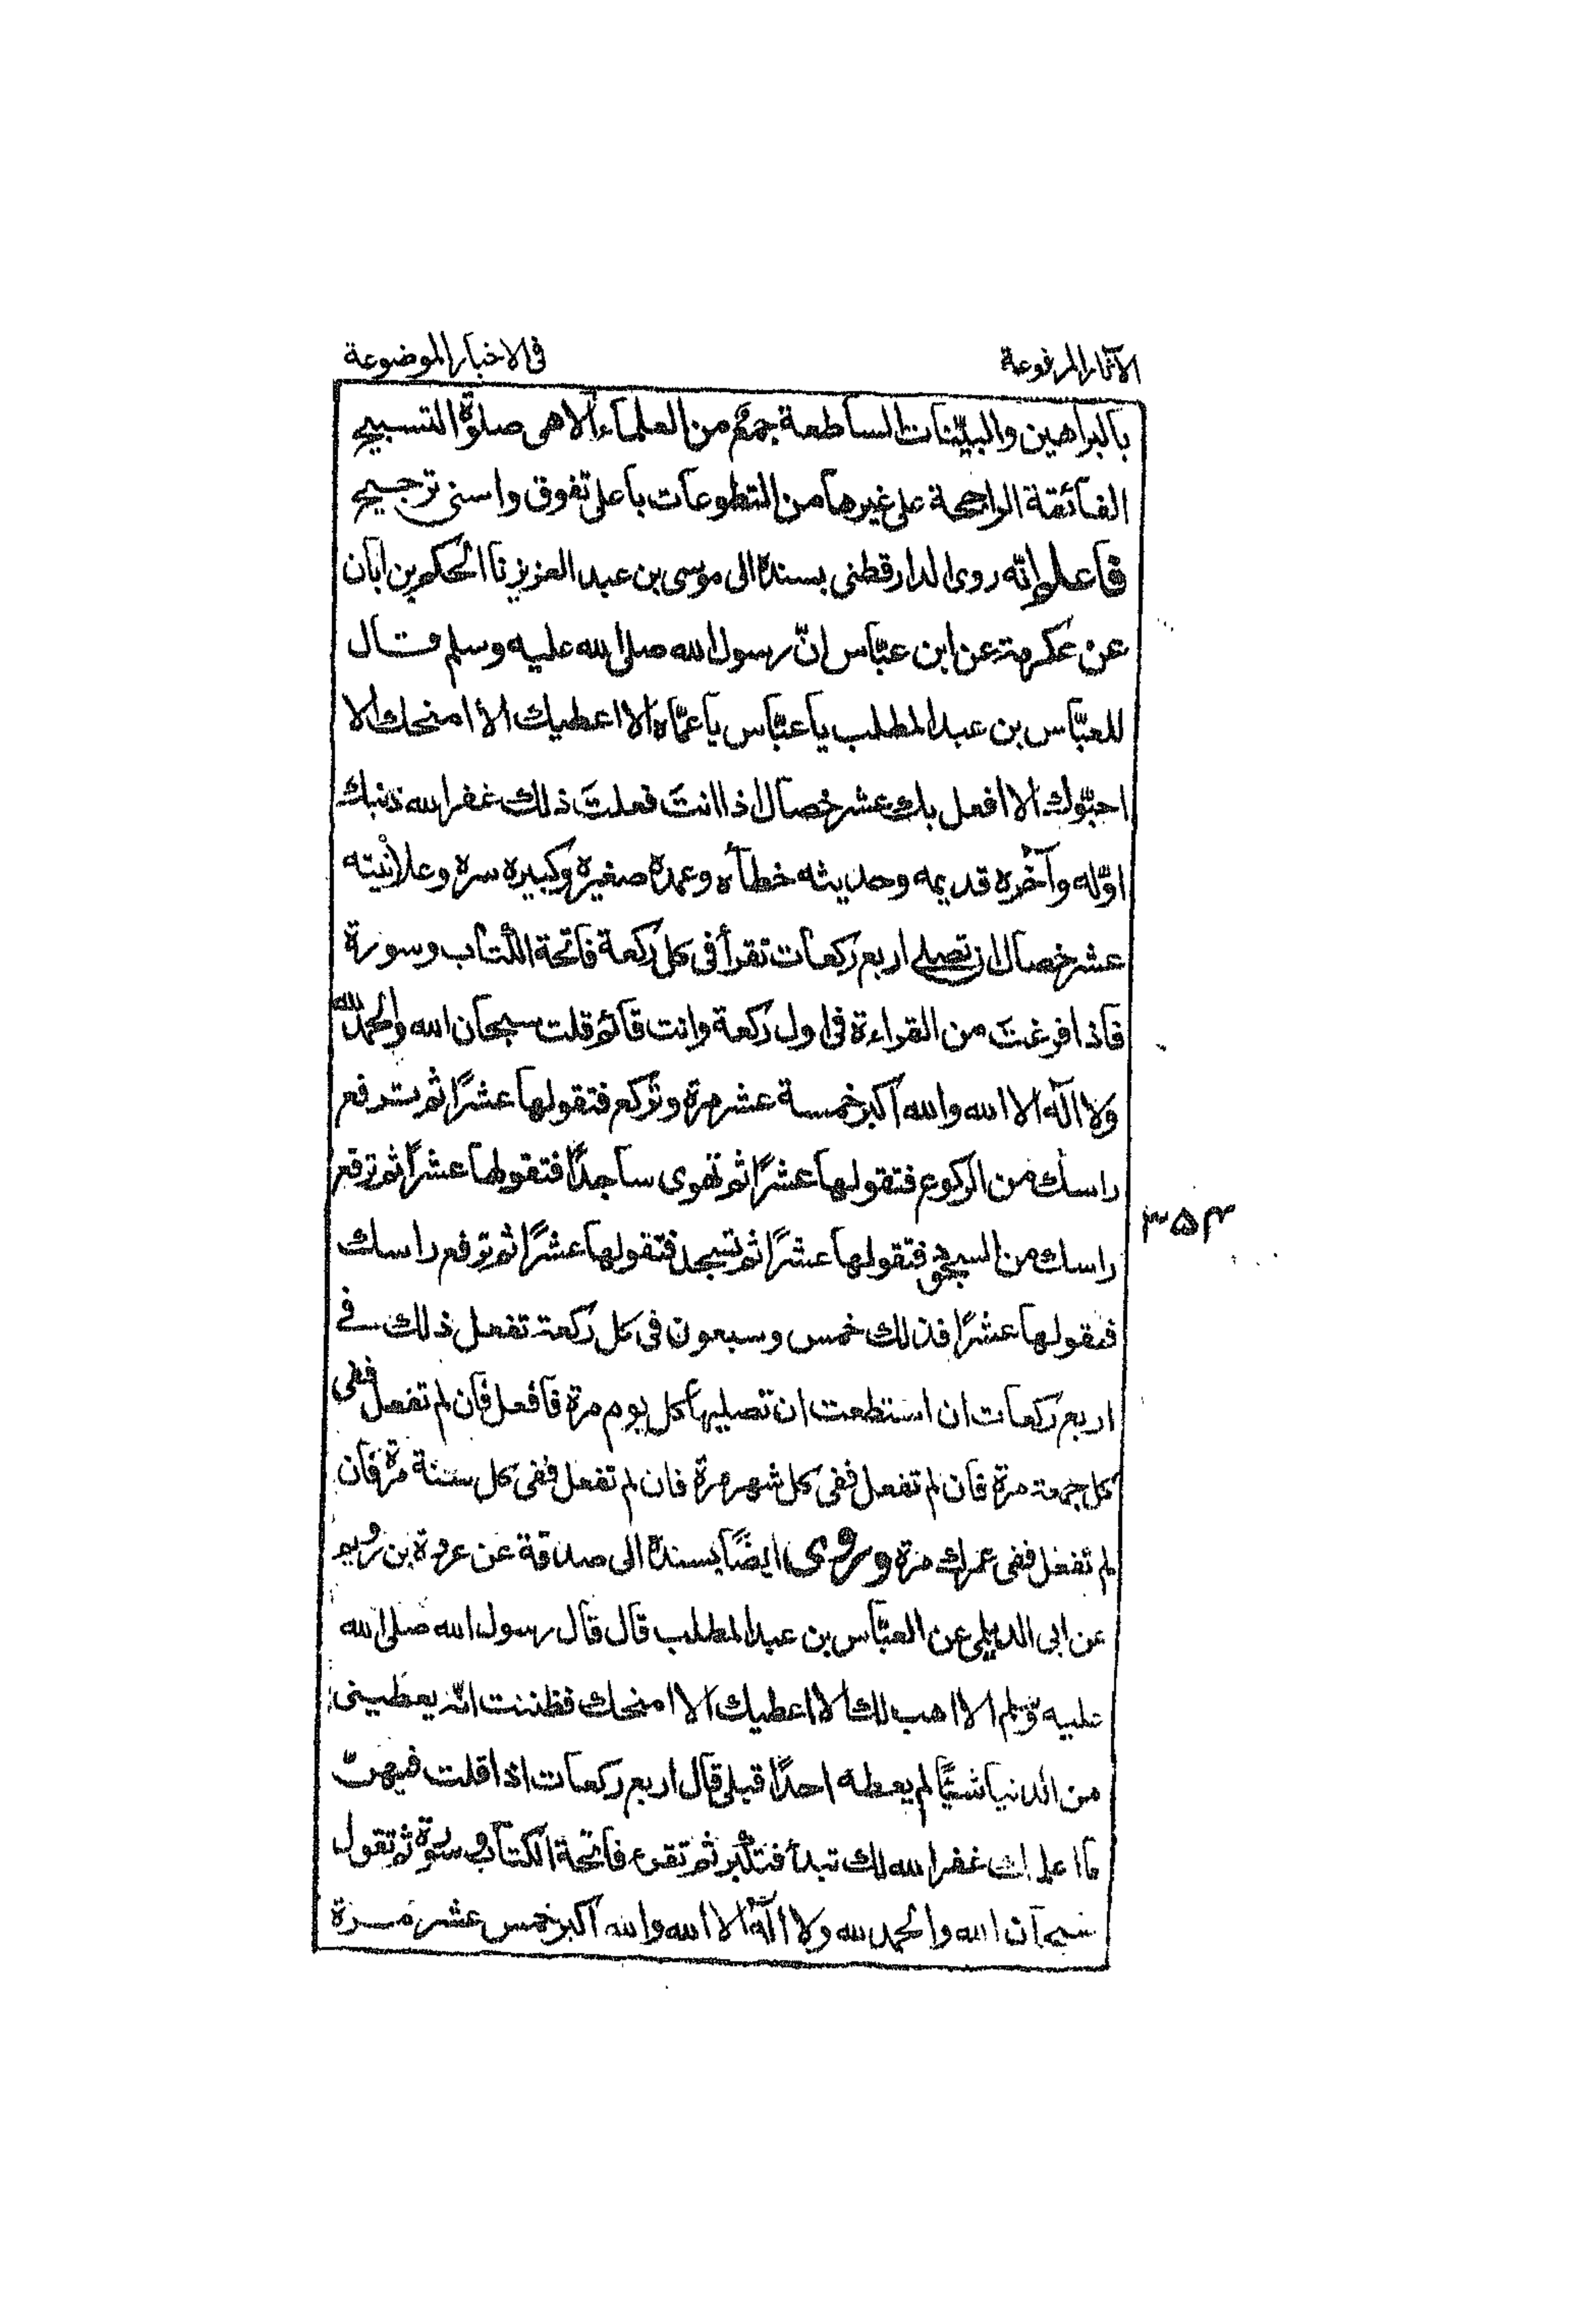 الآثار المرفوعة
فى الاخبار الموضوعة
بالبراهين والبيّنات الساطعة جمعٌ من العلماء الا هى صلوة التسبيح
الفائقة الراجحة على غيرها من التطوعات باعلى تفوق واسنى ترجيح
فاعلم انّه روى الدارقطنى بسنده الى موسى بن عبد العزيز نا الحكم بن ابان
عن عكرمة عن ابن عبّاس انّ رسول الله صلى الله عليه وسلم قال
للعبّاس بن عبد المطلب يا عبّاس يا عمّاه الا اعطيك الا امنحك الا
احبّوك الا افعل بك عشر خصال اذا انتَ فعلتَ ذلك غفر الله ذنبك
اوّله وآخره قديمه وحديثه خطأه وعمده صغيره وكبيره سره وعلانيته
عشر خصال ان تصلى اربع ركعات تقرأ فى كل ركعة فاتحة الكتاب وسورة
فاذا فرغتَ من القراءة فى اول ركعة وانت قائم قلت سبحان الله والحمد لله
ولا اله الا الله والله اكبر خمسة عشر مرة وتركع فتقولها عشرًا ثم ترفع
راسك من الركوع فتقولها عشرًا ثم تهوى ساجدًا فتقولها عشرًا ثم ترفع
راسك من السجود فتقولها عشرًا ثم تسجد فتقولها عشرًا ثم ترفع راسك
فتقولها عشرًا فذلك خمس وسبعون فى كل ركعة تفعل ذلك فى
اربع ركعات ان استطعت ان تصليها كل يوم مرة فافعل فان لم تفعل ففى
كل جمعة مرة فان لم تفعل ففى كل شهر مرة فان لم تفعل ففى كل سنة مرة فان
لم تفعل ففى عمرك مرة وروى ايضًا بسنده الى صدقة عن عروة بن رويم
عن ابى الديلمى عن العبّاس بن عبد المطلب قال قال رسول الله صلى الله
عليه وسلم الا اهب لك الا اعطيك الا امنحك فظننت انّه يعطينى
من الدنيا شيئًا لم يعطه احدًا قبلى قال اربع ركعات اذا قلت فيهنّ
ما اعلمك غفر الله لك تبدأ فتكبّر ثم تقرء فاتحة الكتاب وسورة ثم تقول
سبحان الله والحمد لله ولا اله الا الله والله اكبر خمس عشر مرة
۳۵۴